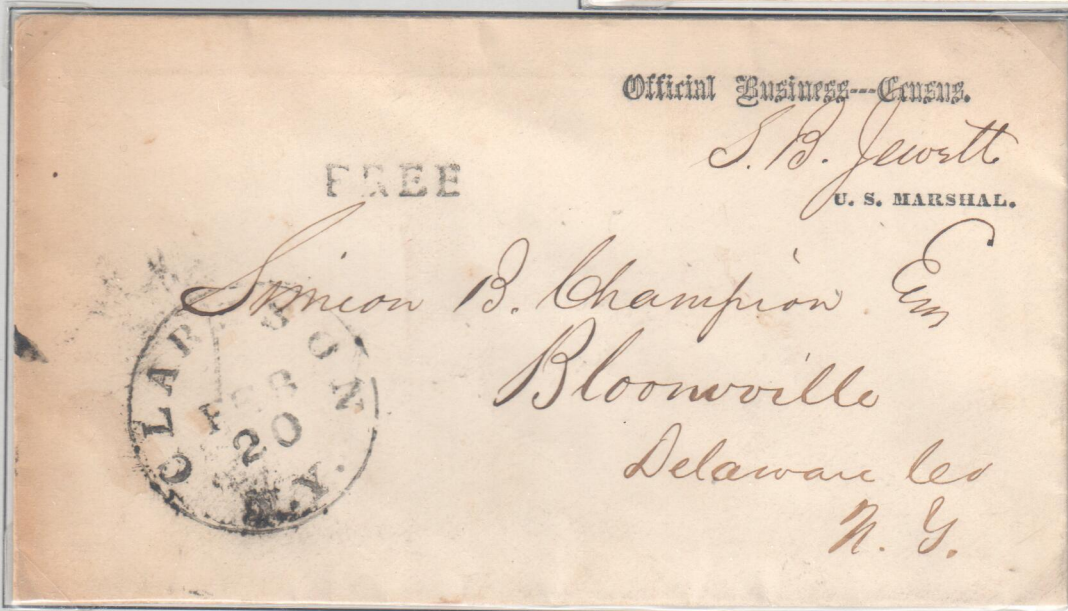 Official Business---Census.
S. B. Jewett
U. S. MARSHAL.
FREE
Simeon B. Champion Esq
Bloomville
Delaware Co
N. Y.
CLARKSON
FEB
20
N.Y.